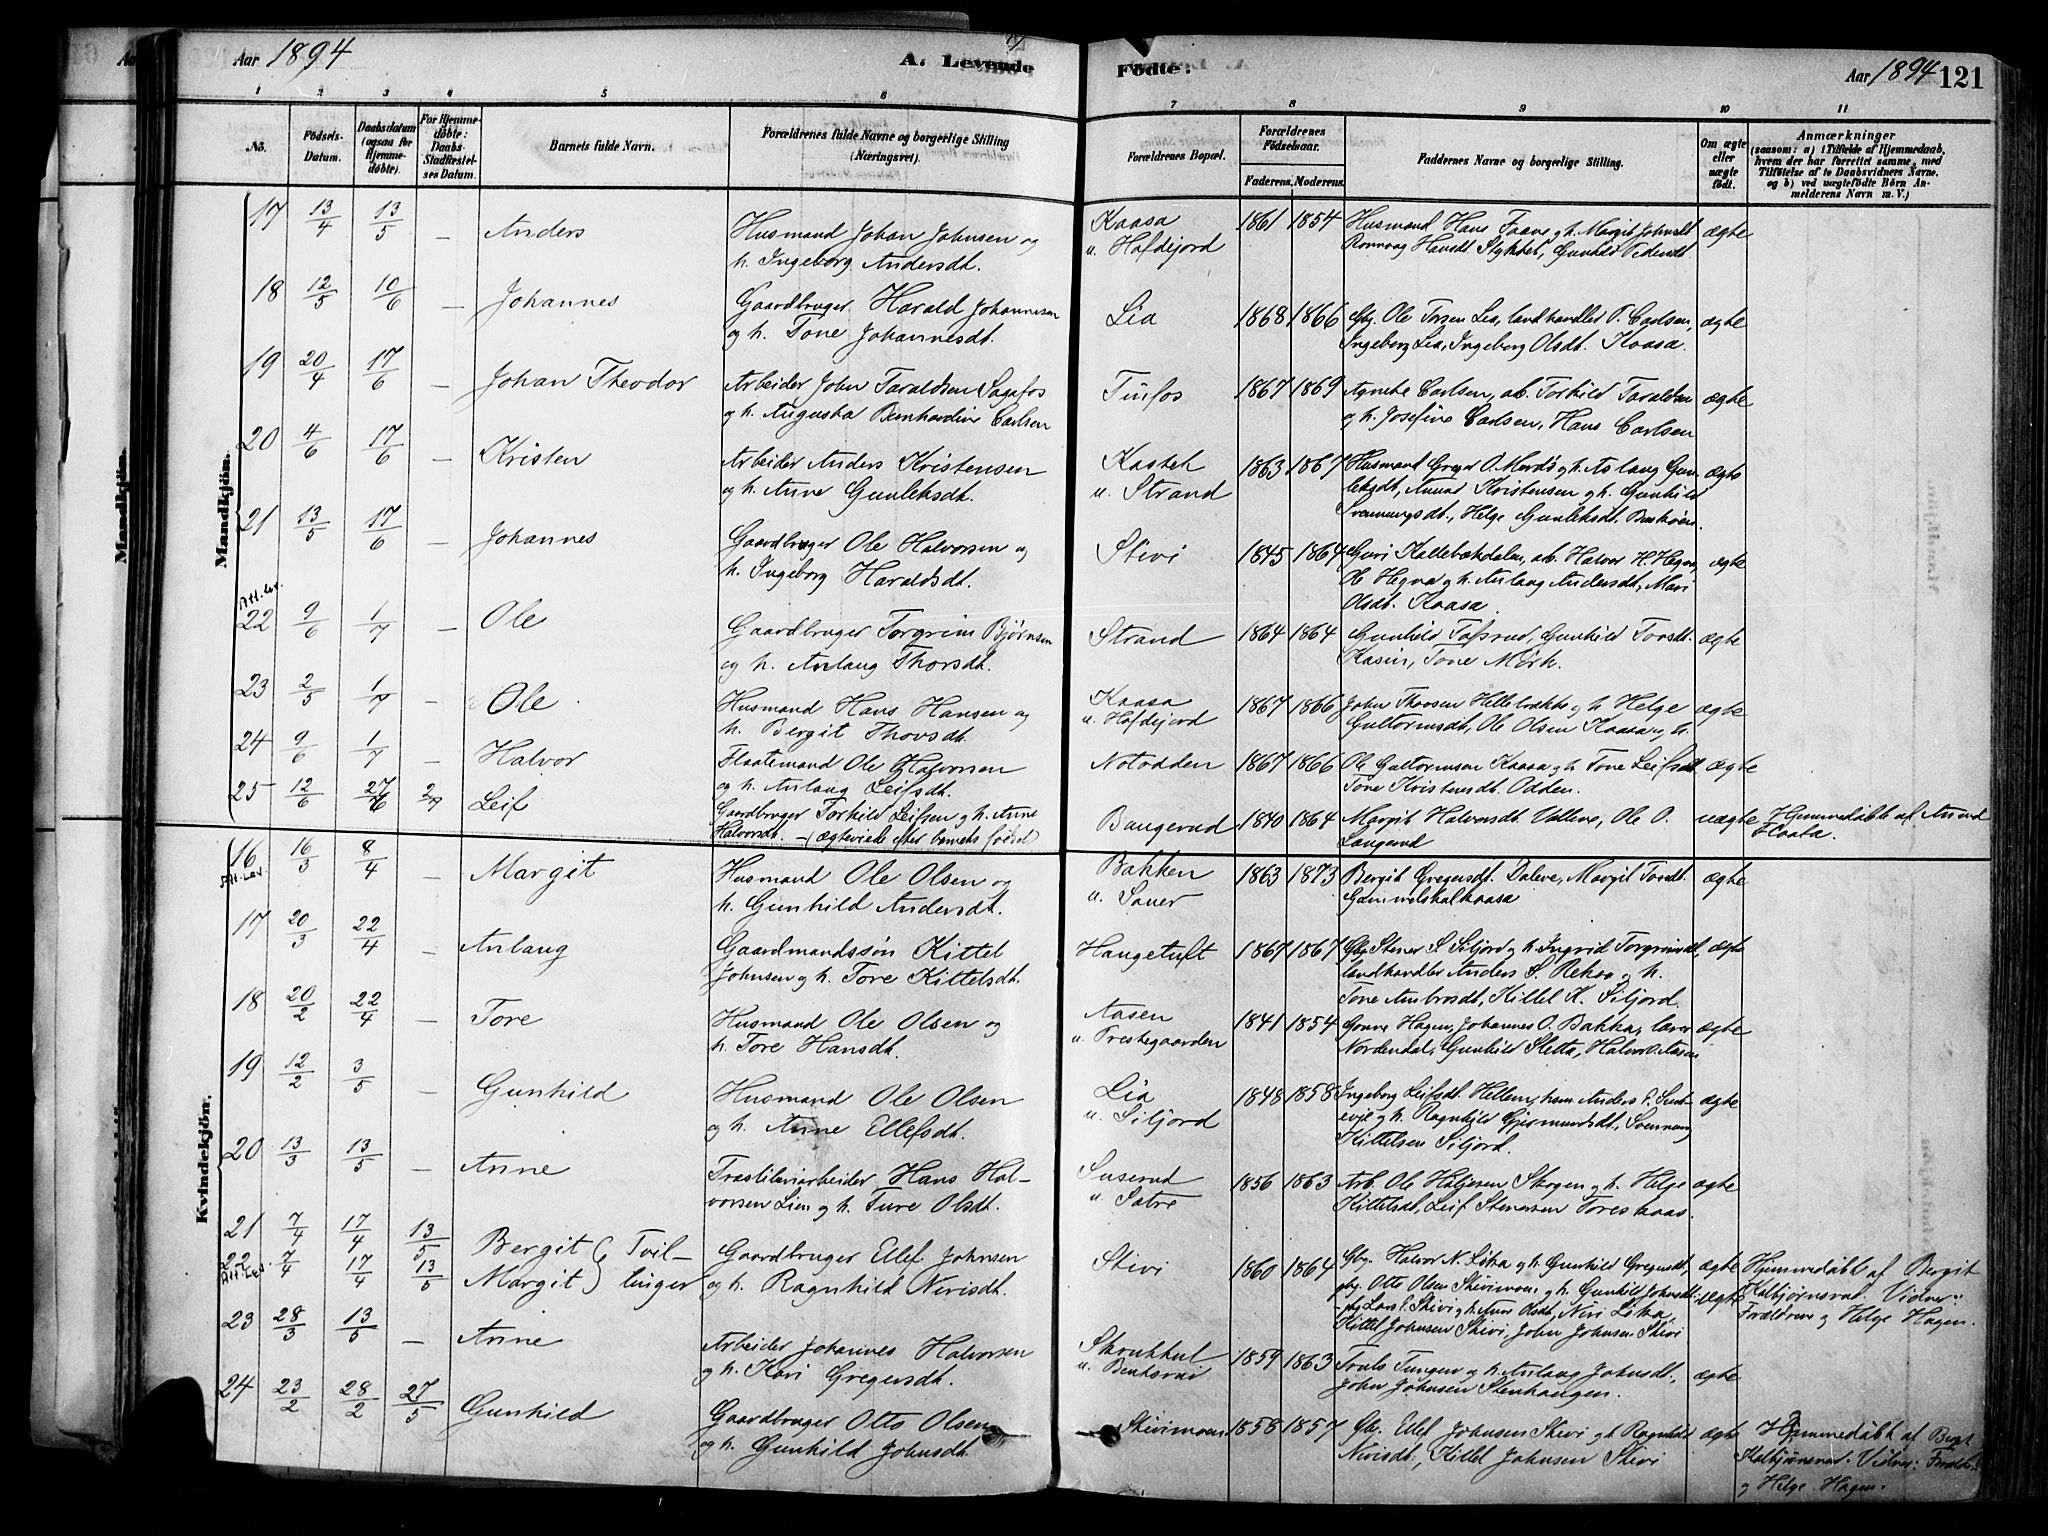 Aar 1894
A. Levende Fødte.
Aar 1894 121
1 2 3 4 5 6 7 8 9 10 11
No.
Fødsels-Datum.
Daabsdatum (ogsaa for Hjemmedøbte).
For Hjemmedøbte: Daabs-Stadfæstelses Datum.
Barnets fulde Navn.
Forældrenes fulde Navne og borgerlige Stilling (Næringsvei).
Forældrenes Bopæl.
Forældrenes Fødselsaar.
Faderens. Moderens.
Faddernes Navne og borgerlige Stilling.
Om ægte eller uægte født.
Anmærkninger
(saasom: a) i Tilfælde af Hjemmedaab, hvem der har forrettet samme, med Tilføielse af to Daabsvidners Navne. og b) ved uægtefødte Børn Anmelderens Navn m. V.)
Mandkjön.
17 13/4 13/5 – Anders Husmand Johan Johnsen og Kaasa 1861 1854 Husmand Hans Faave og h. Margit Johnsdt ægte
h. Ingeborg Andersdt. u. Hofdejord Ronnaug Hansdt. Stykket, Gunhild
18 12/5 10/6 – Johannes Gaardbruger Harald Johannesen Lia 1868 1866 Gbg. Ole Torsen Lia, landhandler P. Carlsen, ægte
og h. Tone Johannesdt. Ingeborg Lia, Ingeborg Olsdt. Kaasa.
19 20/4 17/6 – Johan Theodor Arbeider John Taraldsen Sagafos Tinfos 1867 1869 Agnethe Carlsen, arb. Torkild Taraldsen ægte
og h. Augusta Bernhardine Carlsen og h. Josefine Carlsen, Hans Carlsen
20 4/6 17/6 – Kristen Arbeider Anders Kristensen Kasteh 1863 1867 Husmand Greger O. Mordø og h. Aslaug Gun- ægte
og h. Anne Gunleksdt. u. Strand leksdt, Kristensen og h. Gunhild
Svennungsdt., Helge Gunleksdt.
21 13/5 17/6 Johannes Gaardbruger Ole Halvorsen og Stivi 1845 1864 Guri Kallebækdalen, arb. Halvor H. Hegna, ægte
h. Ingeborg Haraldsdt. Ole Hegna og h. Anlaug Andersdt, Mari
Olsdt. Kaasa.
Att. lev.
22 9/6 1/7 – Ole Gaardbruger Torgrim Bjørnsen Strand 1864 1864 Gunhild Tofsrud, Gunhild Torsdt. ægte
og h. Anlaug Thorsdt. Kasin, Tone Mørk.
23 2/5 1/7 – Ole Husmand Hans Hansen og Kaasa 1867 1866 John Thovsen Hellebække og h. Helge ægte
h. Bergit Thovsdt. u. Hofdejord Guttormsdt, Ole Olsen Kaasa og h.
24 9/6 1/7 – Halvor Flaatemand Ole Halvorsen Notodden 1867 1866 Ole Guttormsen Kaasa og h. Tone Leifsdt ægte
og h. Anlaug Leifsdt. Tone Kristensdt. Odden.
25 12/6 27/6 2/9 Leif Gaardbruger Torkild Leifsen og h. Anne Baugerud 1840 1864 Margit Halvorsdt. Valleve, Ole O. uægte Hjemmedøbt af Anund
Halvorsdt. – (ægteviede efter barnets fødsel) Langerud Flaata.
Kvindekjön.
16 16/3 8/4 – Margit Husmand Ole Olsen og Bakken 1863 1873 Bergit Gregersdt. Daleve, Margit Tordt. ægte
Att. Lev. h. Gunhild Andersdt. u. Sauer Gammelskalkaasa
17 20/3 22/4 – Anlaug Gaardmandssøn Kittel Haugetuft 1867 1867 Gbg Stener S Siljord og h. Ingrid Torgrimsdt, ægte
Johnsen og h. Tore Kittelsdt. landhandler Anders S. Rekaa og h.
Tone Ambrosdt, Kittel K. Siljord.
18 20/2 22/4 – Tore Husmand Ole Olsen og Aasen 1841 1854 Gonve Hagen, Johannes O. Bakka, lærer ægte
h. Tore Hansdt. u. Prestegaarden Nordendal, Gunhild Sletta, Halvor O. Aasen
19 12/2 3/5 – Gunhild Husmand Ole Olsen Lia 1848 1858 Ingeborg Leifsdt. Hellem, Anders P. ægte
og h. Anne Ellefsdt. u. Siljord og h. Ragnhild Gjermundsdt., Svennung
Kittelsen Siljord.
20 13/3 13/5 – Anne Træsliberiarbeider Hans Hal- Suserud 1856 1863 Arb. Ole Haljesen Skogen og h. Helge ægte
vorsen Lien og h. Ture Olsdt. u. Satre Kittelsdt, Leif Stenersen Toreskaas.
21 7/4 17/4 13/5 Bergit ( Tvil- Gaardbruger Ellef Johnsen Stivi 1860 1864 Gbg. Halvor N. Litra og h. Gunhild Gregersdt, ægte Hjemmedøbt af Bergit
22 7/4 17/4 13/5 Margit ) linger og h. Ragnhild Nirisdt. gbg. Otto Olsen Skivimoen og h. Gunhild Johnsdt. ægte Kalbjørnsrud. Vidner:
Att. Lev. gbg Lars P. Skivi og h. Anne Olsdt, Niri Litra, Forældrene og Helge Hagen.
Kittel Johnsen Skivi, John Johnsen Skivi
23 28/3 13/5 – Anne Arbeider Johannes Halvorsen Skrukkul 1859 1863 Truls Tungen og h. Anlaug Johnsdt., ægte
og h. Kari Gregersdt. u. Bentsrud John Johnsen Stenhaugen.
24 23/2 28/2 27/5 Gunhild Gaardbruger Otto Olsen Skivimoen 1858 1857 Gbg. Ellef Johnsen Skivi og h. Ragnhild ægte Hjemmedøbt af Bergit
og h. Gunhild Johnsdt. Nirisdt, Kittel Johnsen Skivi Kalbjørnsrud. Vidner:
og Helge Hagen.